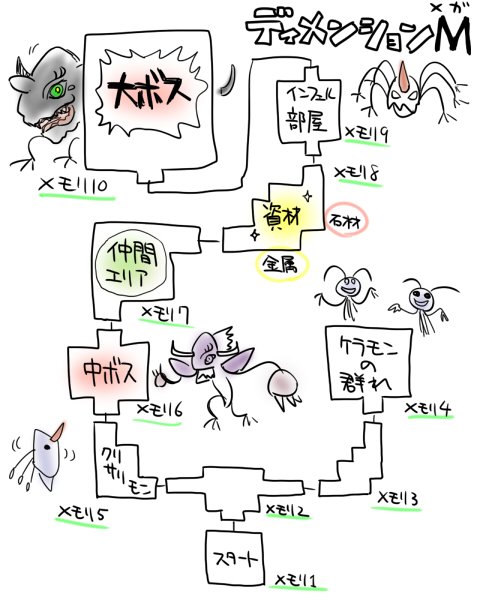 ディメンションM
メガ
大ボス
メモリ10
インフェル
部屋
メモリ9
メモリ8
資材
石材
金属
仲間
エリア
メモリ7
中ボス
メモリ6
ケラモン
の
群れ
メモリ4
クリ
サリ
モン
メモリ5
メモリ2
メモリ3
スタート
メモリ1